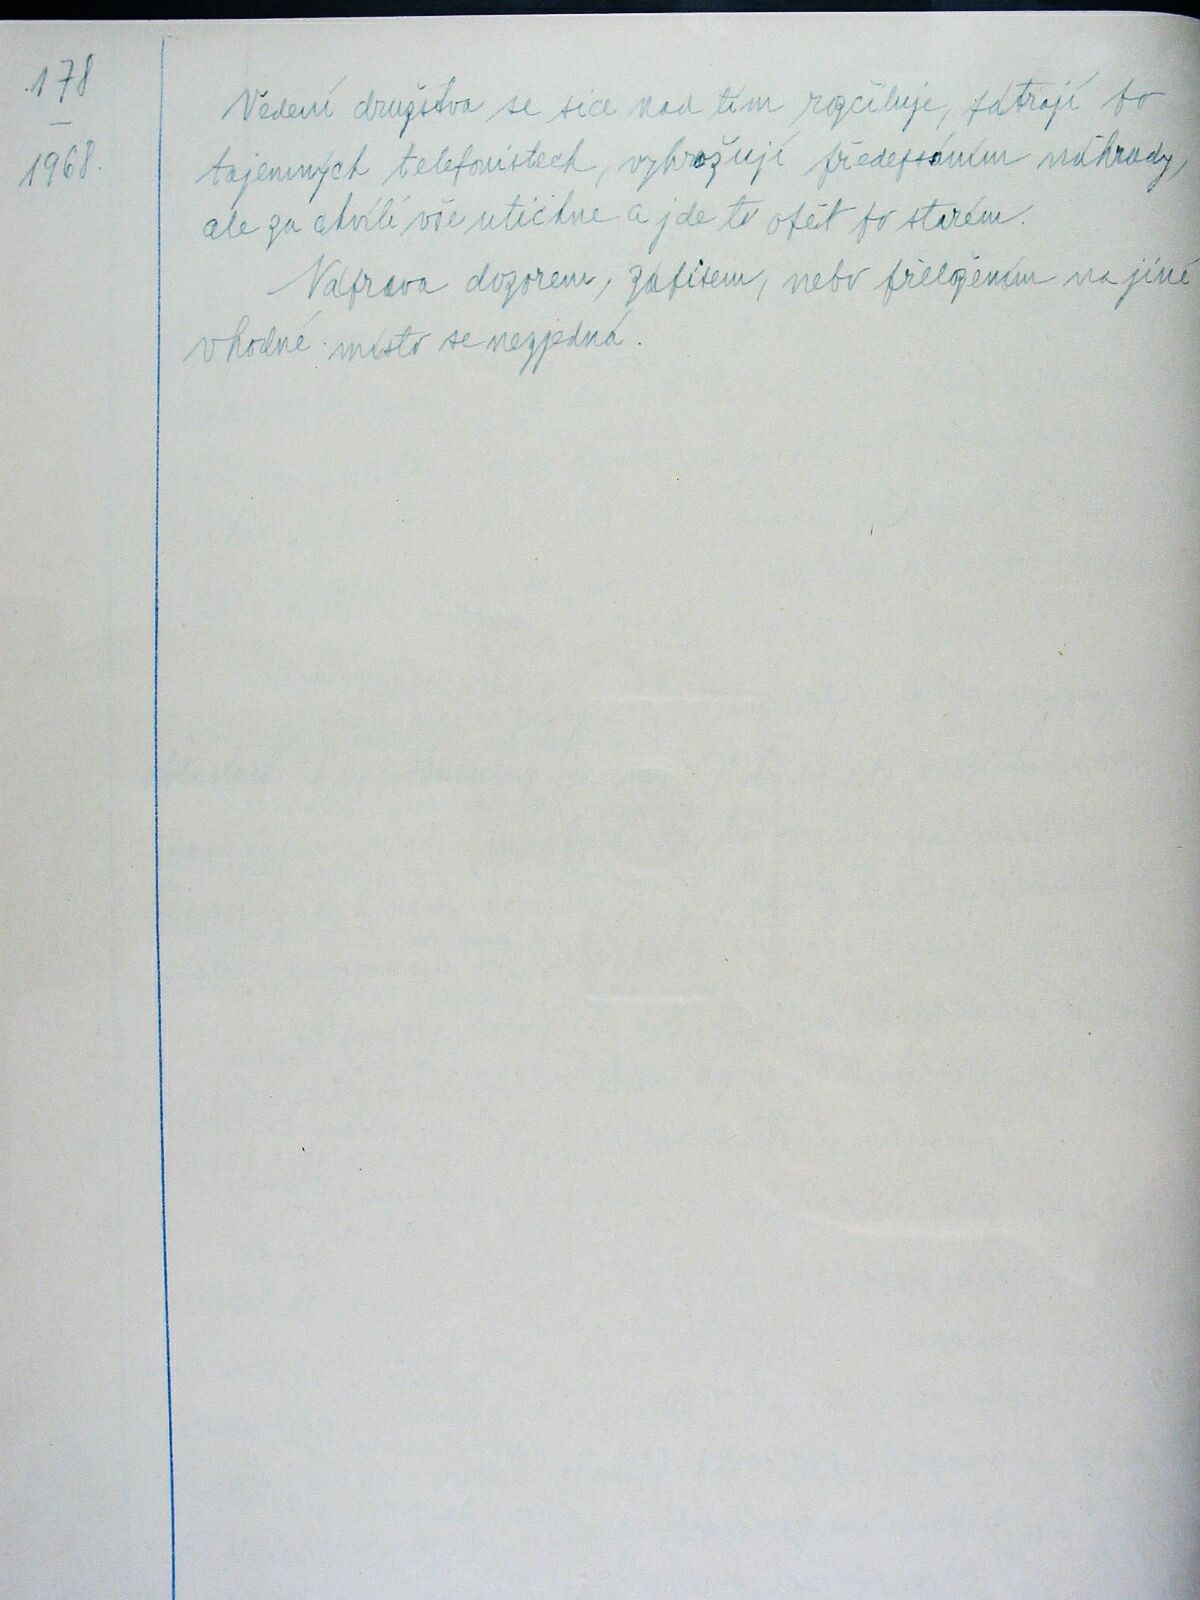 178
—
1968.
Vedení družstva se sice nad tím rozčiluje, pátrají po
tajemných telefonistech, vyhrožují předepsáním náhrady,
ale za chvíli vše utichne a jde to opět po starém.
Náprava dozorem, zápisem, nebo přeložením na jiné
vhodné místo se nezjedná.